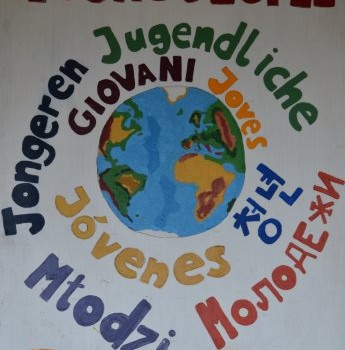 Jugendliche
Jongeren
GIOVANI
Joves
청년
Jóvenes
Młodzi
МОЛОДЕЖИ